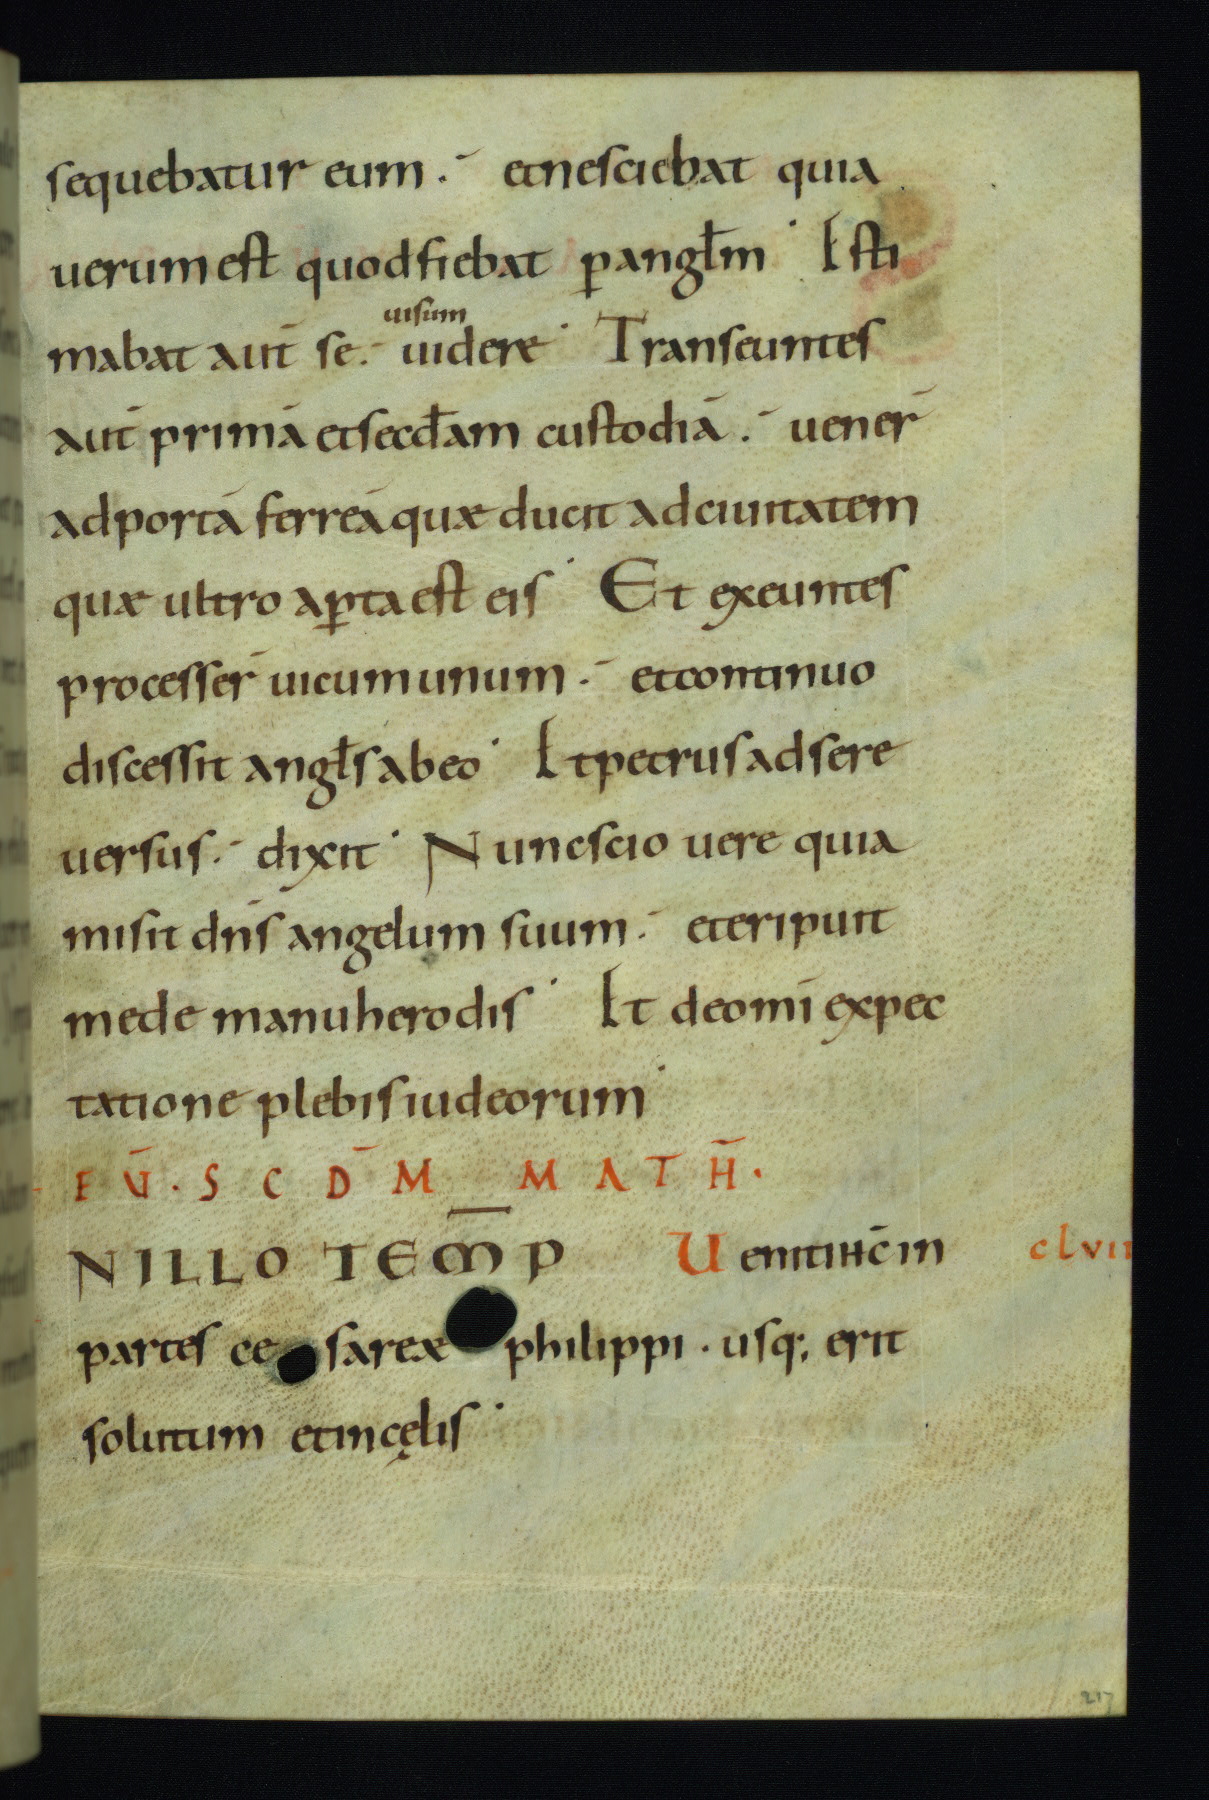 sequebatur eum. et nesciebat quia
uerum est quod fiebat p̱ angłm Esti
mabat aūt se. uisum uidere Transeuntes
aūt primā et secdam custodiā. uener̄
ad portā ferreā quæ ducit ad ciuitatem
quæ ultro ap̱ta est eis Et exeuntes
processer̄ uicum unum. et continuo
discessit angłs ab eo Et petrus ad se re
uersus. dixit Nunc scio uere quia
misit dn̄s angelum suum. et eripuit
me de manu herodis Et de omī expec
tatione plebis iudeorum
EŪ. SCD̄M MATH̄.
N ILLO TEM̄P Uenit ih̄c in clvii
partes cesareæ philippi. usq; erit
solutum et in cęlis
217